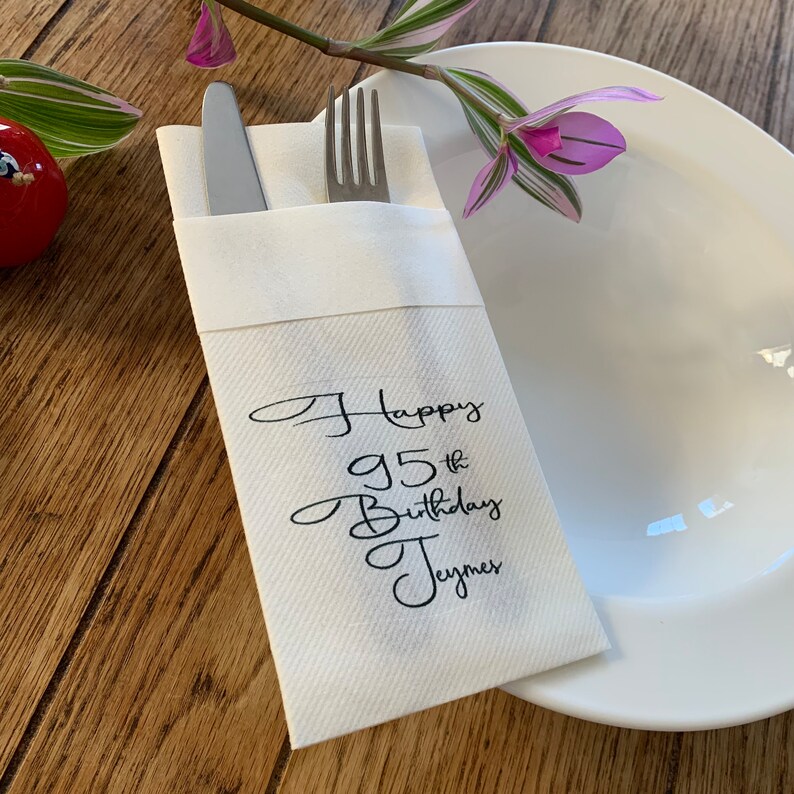 Happy
95th
Birthday
Jeymes